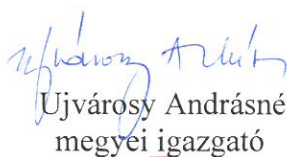 Ujvárosy Andrásné
megyei igazgató